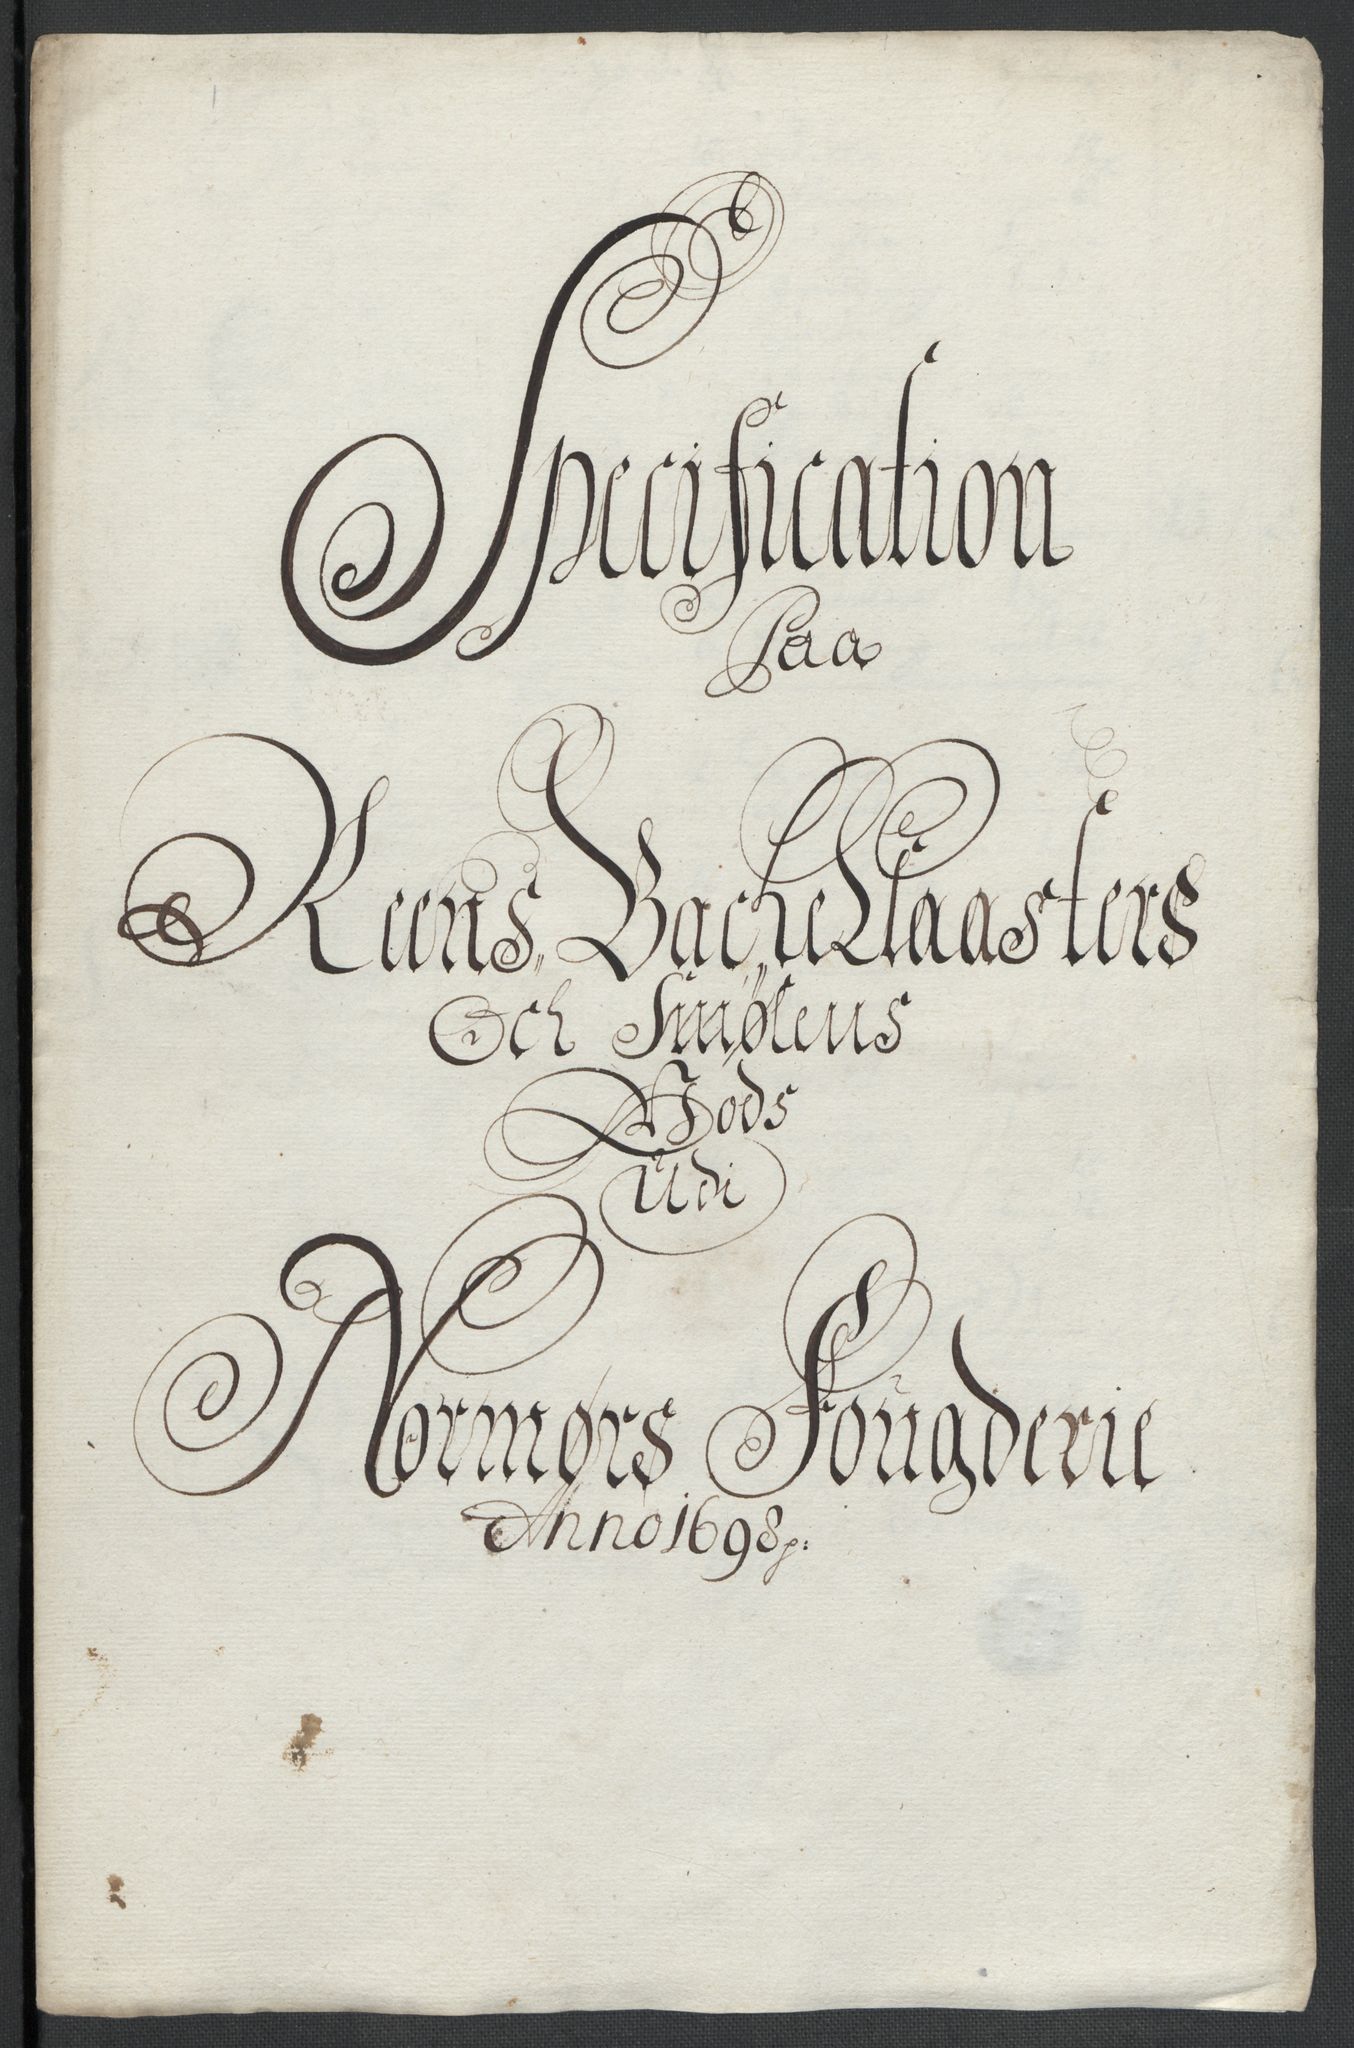 Specification
Paa
Reens, Bache Klaasters
Och Smølens
Gods
Udi
Normørs Fougderie
Anno 1698 p: